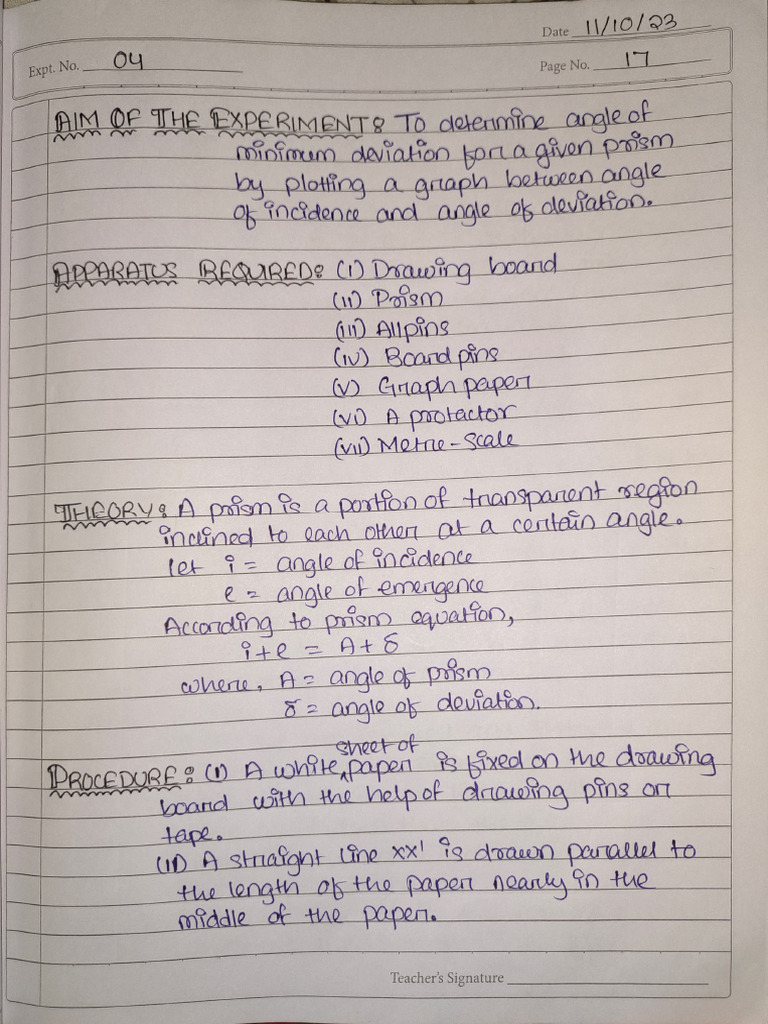 Date 11/10/23
Expt. No. 04
Page No. 17
AIM OF THE EXPERIMENT: To determine angle of
minimum deviation for a given prism
by plotting a graph between angle
of incidence and angle of deviation.
APPARATUS REQUIRED: (i) Drawing board
(ii) Prism
(iii) Allpins
(iv) Board pins
(v) Graph paper
(vi) A protactor
(vii) Metric-Scale
THEORY: A prism is a portion of transparent region
inclined to each other at a certain angle.
let i = angle of incidence
e = angle of emergence
According to prism equation,
i+e = A+δ
where, A = angle of prism
δ = angle of deviation.
PROCEDURE: (i) A white sheet of paper is fixed on the drawing
board with the help of drawing pins or
tape.
(ii) A straight line xx' is drawn parallel to
the length of the paper nearly in the
middle of the paper.
Teacher's Signature